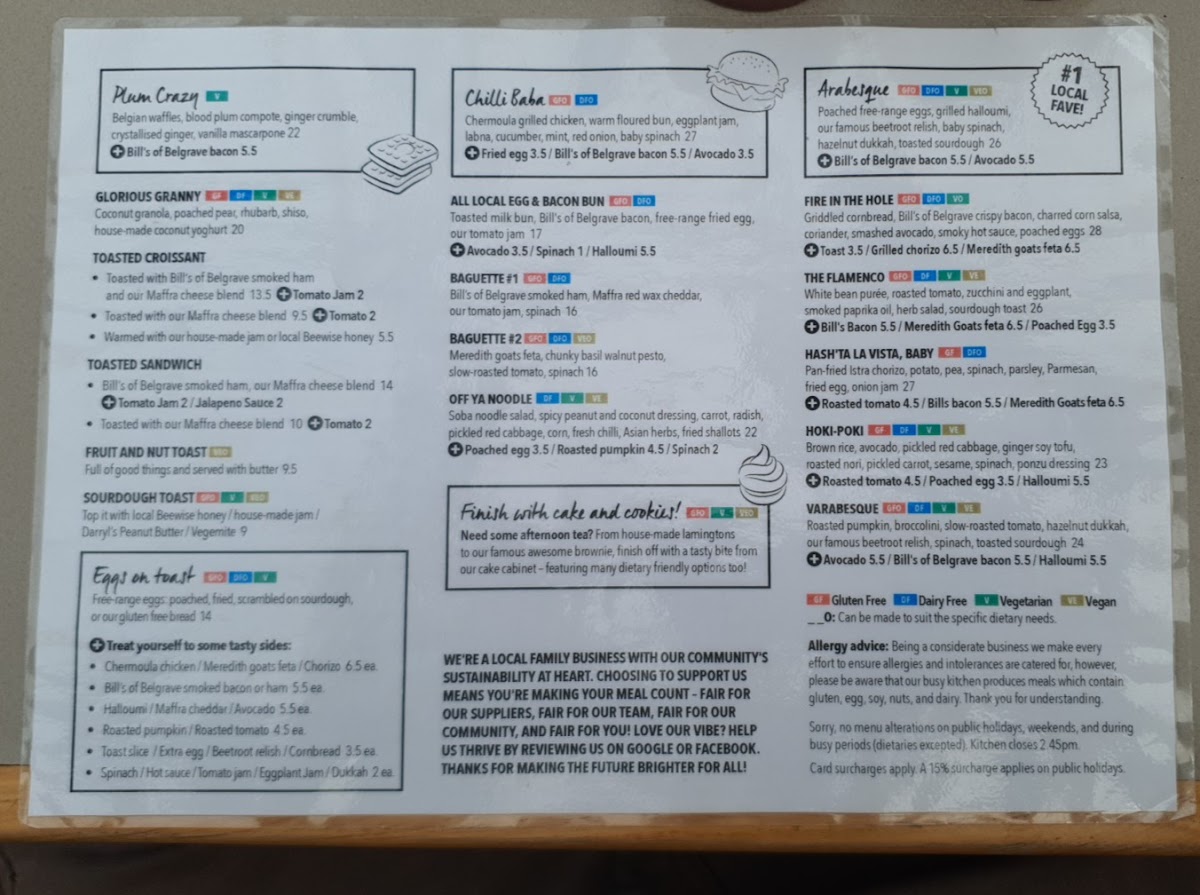 Plum Crazy V
Belgian waffles, blood plum compote, ginger crumble,
crystallised ginger, vanilla mascarpone 22
+ Bill's of Belgrave bacon 5.5
GLORIOUS GRANNY GF DF V VE
Coconut granola, poached pear, rhubarb, shiso,
house-made coconut yoghurt 20
TOASTED CROISSANT
• Toasted with Bill's of Belgrave smoked ham
and our Maffra cheese blend 13.5 + Tomato Jam 2
• Toasted with our Maffra cheese blend 9.5 + Tomato 2
• Warmed with our house-made jam or local Beewise honey 5.5
TOASTED SANDWICH
• Bill's of Belgrave smoked ham, our Maffra cheese blend 14
+ Tomato Jam 2 / Jalapeno Sauce 2
• Toasted with our Maffra cheese blend 10 + Tomato 2
FRUIT AND NUT TOAST VEO
Full of good things and served with butter 9.5
SOURDOUGH TOAST GFO V VEO
Top it with local Beewise honey / house-made jam /
Darryl's Peanut Butter / Vegemite 9
Eggs on toast GFO DFO V
Free-range eggs: poached, fried, scrambled on sourdough,
or our gluten free bread 14
+ Treat yourself to some tasty sides:
• Chermoula chicken / Meredith goats feta / Chorizo 6.5 ea.
• Bill's of Belgrave smoked bacon or ham 5.5 ea.
• Halloumi / Maffra cheddar / Avocado 5.5 ea.
• Roasted pumpkin / Roasted tomato 4.5 ea.
• Toast slice / Extra egg / Beetroot relish / Cornbread 3.5 ea.
• Spinach / Hot sauce / Tomato jam / Eggplant Jam / Dukkah 2 ea.
Chilli Baba GFO DFO
Chermoula grilled chicken, warm floured bun, eggplant jam,
labna, cucumber, mint, red onion, baby spinach 27
+ Fried egg 3.5 / Bill's of Belgrave bacon 5.5 / Avocado 3.5
ALL LOCAL EGG & BACON BUN GFO DFO
Toasted milk bun, Bill's of Belgrave bacon, free-range fried egg,
our tomato jam 17
+ Avocado 3.5 / Spinach 1 / Halloumi 5.5
BAGUETTE #1 GFO DFO
Bill's of Belgrave smoked ham, Maffra red wax cheddar,
our tomato jam, spinach 16
BAGUETTE #2 GFO DFO VEO
Meredith goats feta, chunky basil walnut pesto,
slow-roasted tomato, spinach 16
OFF YA NOODLE DF V VE
Soba noodle salad, spicy peanut and coconut dressing, carrot, radish,
pickled red cabbage, corn, fresh chilli, Asian herbs, fried shallots 22
+ Poached egg 3.5 / Roasted pumpkin 4.5 / Spinach 2
Finish with cake and cookies! GFO V VEO
Need some afternoon tea? From house-made lamingtons
to our famous awesome brownie, finish off with a tasty bite from
our cake cabinet – featuring many dietary friendly options too!
WE'RE A LOCAL FAMILY BUSINESS WITH OUR COMMUNITY'S
SUSTAINABILITY AT HEART. CHOOSING TO SUPPORT US
MEANS YOU'RE MAKING YOUR MEAL COUNT – FAIR FOR
OUR SUPPLIERS, FAIR FOR OUR TEAM, FAIR FOR OUR
COMMUNITY, AND FAIR FOR YOU! LOVE OUR VIBE? HELP
US THRIVE BY REVIEWING US ON GOOGLE OR FACEBOOK.
THANKS FOR MAKING THE FUTURE BRIGHTER FOR ALL!
Arabesque GFO DFO V VEO
#1
LOCAL
FAVE!
Poached free-range eggs, grilled halloumi,
our famous beetroot relish, baby spinach,
hazelnut dukkah, toasted sourdough 26
+ Bill's of Belgrave bacon 5.5 / Avocado 5.5
FIRE IN THE HOLE GFO DFO VO
Griddled cornbread, Bill's of Belgrave crispy bacon, charred corn salsa,
coriander, smashed avocado, smoky hot sauce, poached eggs 28
+ Toast 3.5 / Grilled chorizo 6.5 / Meredith goats feta 6.5
THE FLAMENCO GFO DF V VE
White bean purée, roasted tomato, zucchini and eggplant,
smoked paprika oil, herb salad, sourdough toast 26
+ Bill's Bacon 5.5 / Meredith Goats feta 6.5 / Poached Egg 3.5
HASH'TA LA VISTA, BABY GF DFO
Pan-fried Istra chorizo, potato, pea, spinach, parsley, Parmesan,
fried egg, onion jam 27
+ Roasted tomato 4.5 / Bills bacon 5.5 / Meredith Goats feta 6.5
HOKI-POKI GF DF V VE
Brown rice, avocado, pickled red cabbage, ginger soy tofu,
roasted nori, pickled carrot, sesame, spinach, ponzu dressing 23
+ Roasted tomato 4.5 / Poached egg 3.5 / Halloumi 5.5
VARABESQUE GFO DF V VE
Roasted pumpkin, broccolini, slow-roasted tomato, hazelnut dukkah,
our famous beetroot relish, spinach, toasted sourdough 24
+ Avocado 5.5 / Bill's of Belgrave bacon 5.5 / Halloumi 5.5
GF Gluten Free DF Dairy Free V Vegetarian VE Vegan
_ _O: Can be made to suit the specific dietary needs.
Allergy advice: Being a considerate business we make every
effort to ensure allergies and intolerances are catered for, however,
please be aware that our busy kitchen produces meals which contain
gluten, egg, soy, nuts, and dairy. Thank you for understanding.
Sorry, no menu alterations on public holidays, weekends, and during
busy periods (dietaries excepted). Kitchen closes 2.45pm.
Card surcharges apply. A 15% surcharge applies on public holidays.